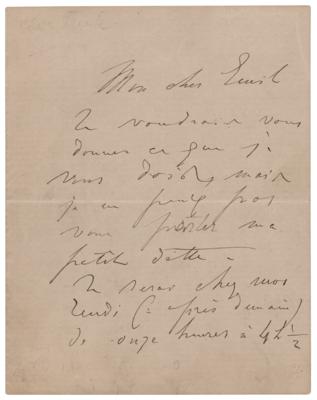 Mon cher Emile
Je voudrais vous
donner ce que je
vous dois, mais
je ne peux pas
vous ma
petite dette.
Je serai chez moi
lundi (après demain)
de onze heures à 4h 1/2